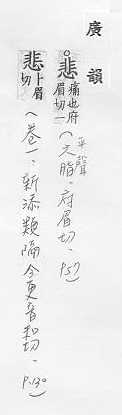 廣韻
悲痛也府眉切一(平聲六脂.府眉切.P57)
悲卜眉切(卷一.新添類隔今更音和切.P.130)